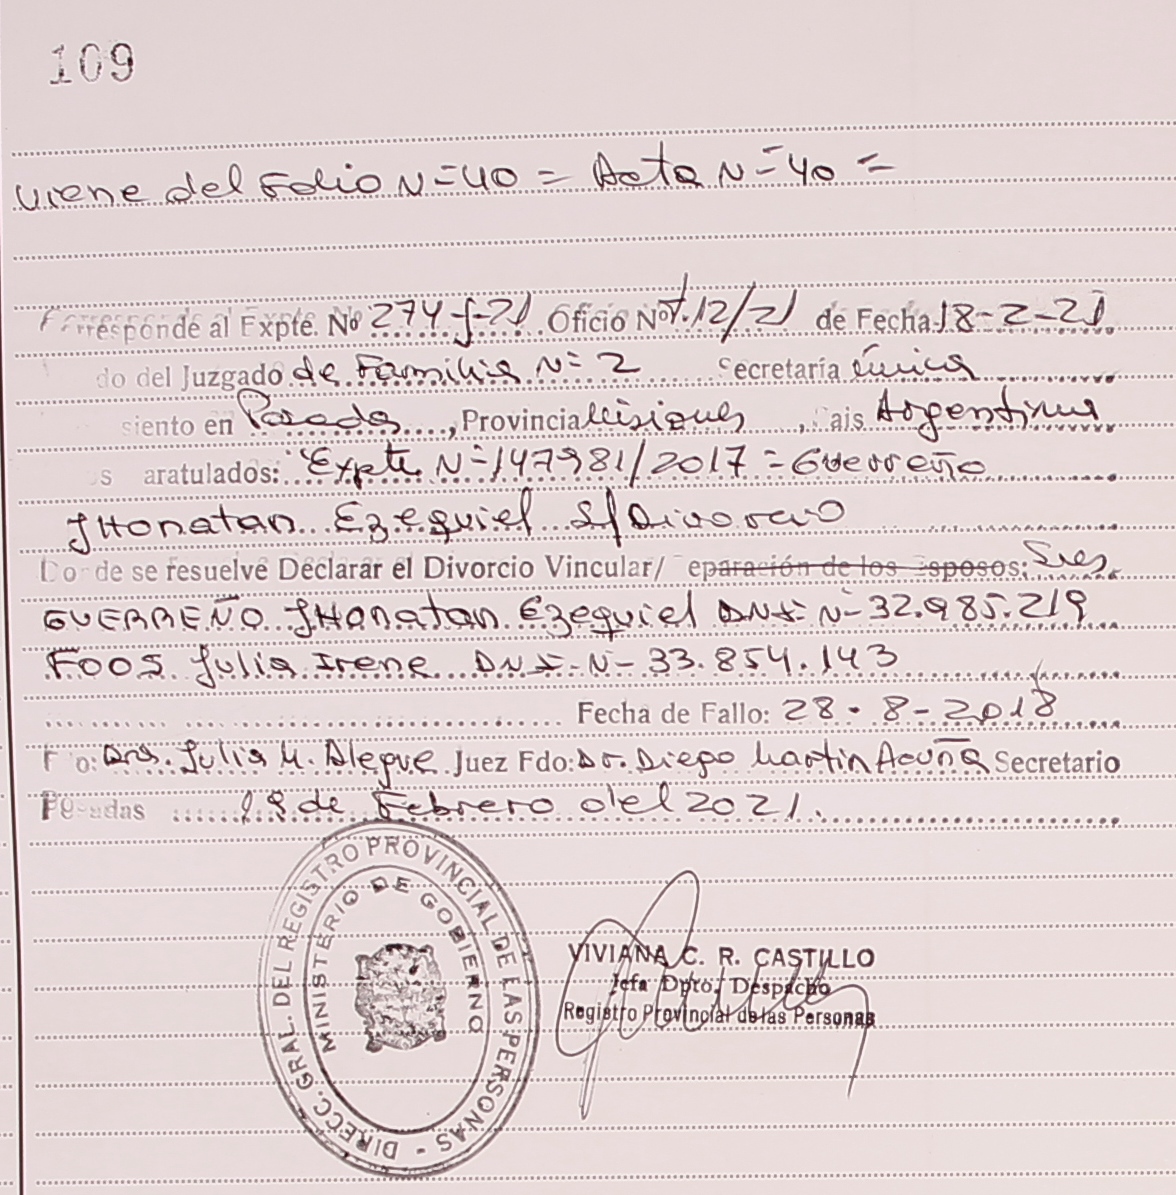 109
viene del Folio N=40 = Acta N=40 =
Corresponde al Expte. Nº 274-J-21 Oficio Nº 12/21 de Fecha 18-2-21
do del Juzgado de Familia N= 2 Secretaría única
siento en Posadas, Provincia Misiones, País Argentina
s aratulados: "Expte N=147981/2017 = Guerreño
JHonatan Ezequiel s/Divorcio
Donde se resuelve Declarar el Divorcio Vincular/ eparación de los Esposos: Sres
GUERREÑO JHonatan Ezequiel DNI N- 32.985.219
FOOS Julia Irene DNI N- 33.854.143
Fecha de Fallo: 28 - 8 - 2018
F o: Dra. Julia M. Alegre Juez Fdo: Dr. Diego Martin Acuña Secretario
Posadas 19 de Febrero del 2021.
DIRECC. GRAL. DEL REGISTRO PROVINCIAL DE LAS PERSONAS -
MINISTERIO DE GOBIERNO
VIVIANA C. R. CASTILLO
Jefa Dpto. Despacho
Registro Provincial de las Personas